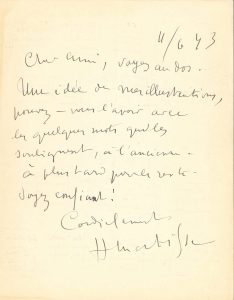 11/6 43
Cher ami, voyez au dos.
Une idée de mes illustrations,
pouvez-vous l'avoir avec
les quelques mots qui les
soulignent, à l'ancienne -
à plus tard pour le reste.
Soyez confiant !
Cordialement
H Matisse